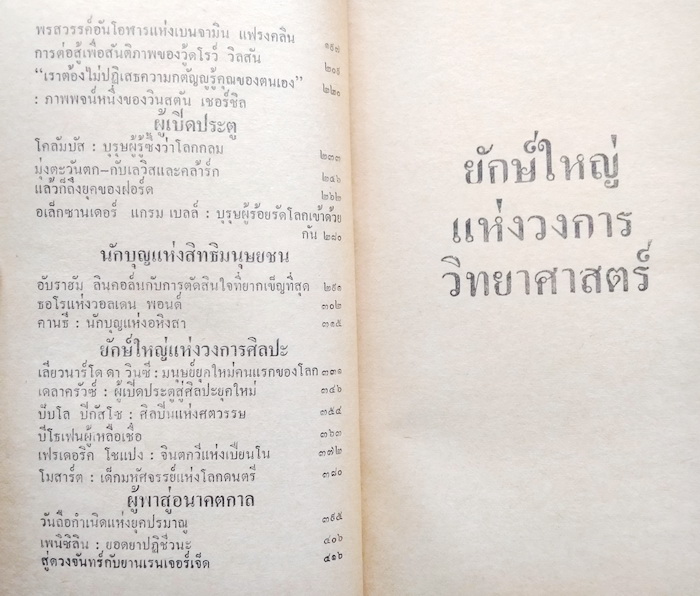 พรสวรรค์อันโอฬารแห่งเบนจามิน แฟรงคลิน ๑๙๗
การต่อสู้เพื่อสันติภาพของวู้ดโรว์ วิลสัน ๒๐๑
“เราต้องไม่ปฏิเสธความกตัญญูรู้คุณของตนเอง” ๒๒๐
: ภาพพจน์หนึ่งของวินสตัน เชอร์ชิล
ผู้เปิดประตู
โคลัมบัส : บุรุษผู้รู้ซึ้งว่าโลกกลม ๒๓๓
มุ่งตะวันตก–กับเลวิสและคล้าร์ก ๒๔๖
แล้วก็ถึงยุคของฟอร์ด ๒๖๒
อเล็กซานเดอร์ แกรม เบลล์ : บุรุษผู้ร้อยรัดโลกเข้าด้วย
กัน ๒๘๐
นักบุญแห่งสิทธิมนุษยชน
อับราฮัม ลินคอล์นกับการตัดสินใจที่ยากเข็ญที่สุด ๒๙๑
ธอโรแห่งวอลเดน พอนด์ ๓๐๒
คานธี : นักบุญแห่งอหิงสา ๓๑๕
ยักษ์ใหญ่แห่งวงการศิลปะ
เลียวนาร์โด ดา วินซี : มนุษย์ยุคใหม่คนแรกของโลก ๓๓๑
เดลาครัวซ์ : ผู้เปิดประตูสู่ศิลปะยุคใหม่ ๓๔๖
ปับโล ปิกัสโซ : ศิลปินแห่งศตวรรษ ๓๕๔
บีโธเฟนผู้เหลือเชื่อ ๓๖๓
เฟรเดอริก โชแปง : จินตกวีแห่งเปียนโน ๓๗๒
โมสาร์ต : เด็กมหัศจรรย์แห่งโลกดนตรี ๓๘๐
ผู้พาสู่อนาคตกาล
วันถือกำเนิดแห่งยุคปรมาณู ๓๙๕
เพนิซิลิน : ยอดยาปฏิชีวนะ ๔๐๖
สู่ดวงจันทร์กับยานเรนเจอร์เจ็ด ๔๑๖
ยักษ์ใหญ่
แห่งวงการ
วิทยาศาสตร์